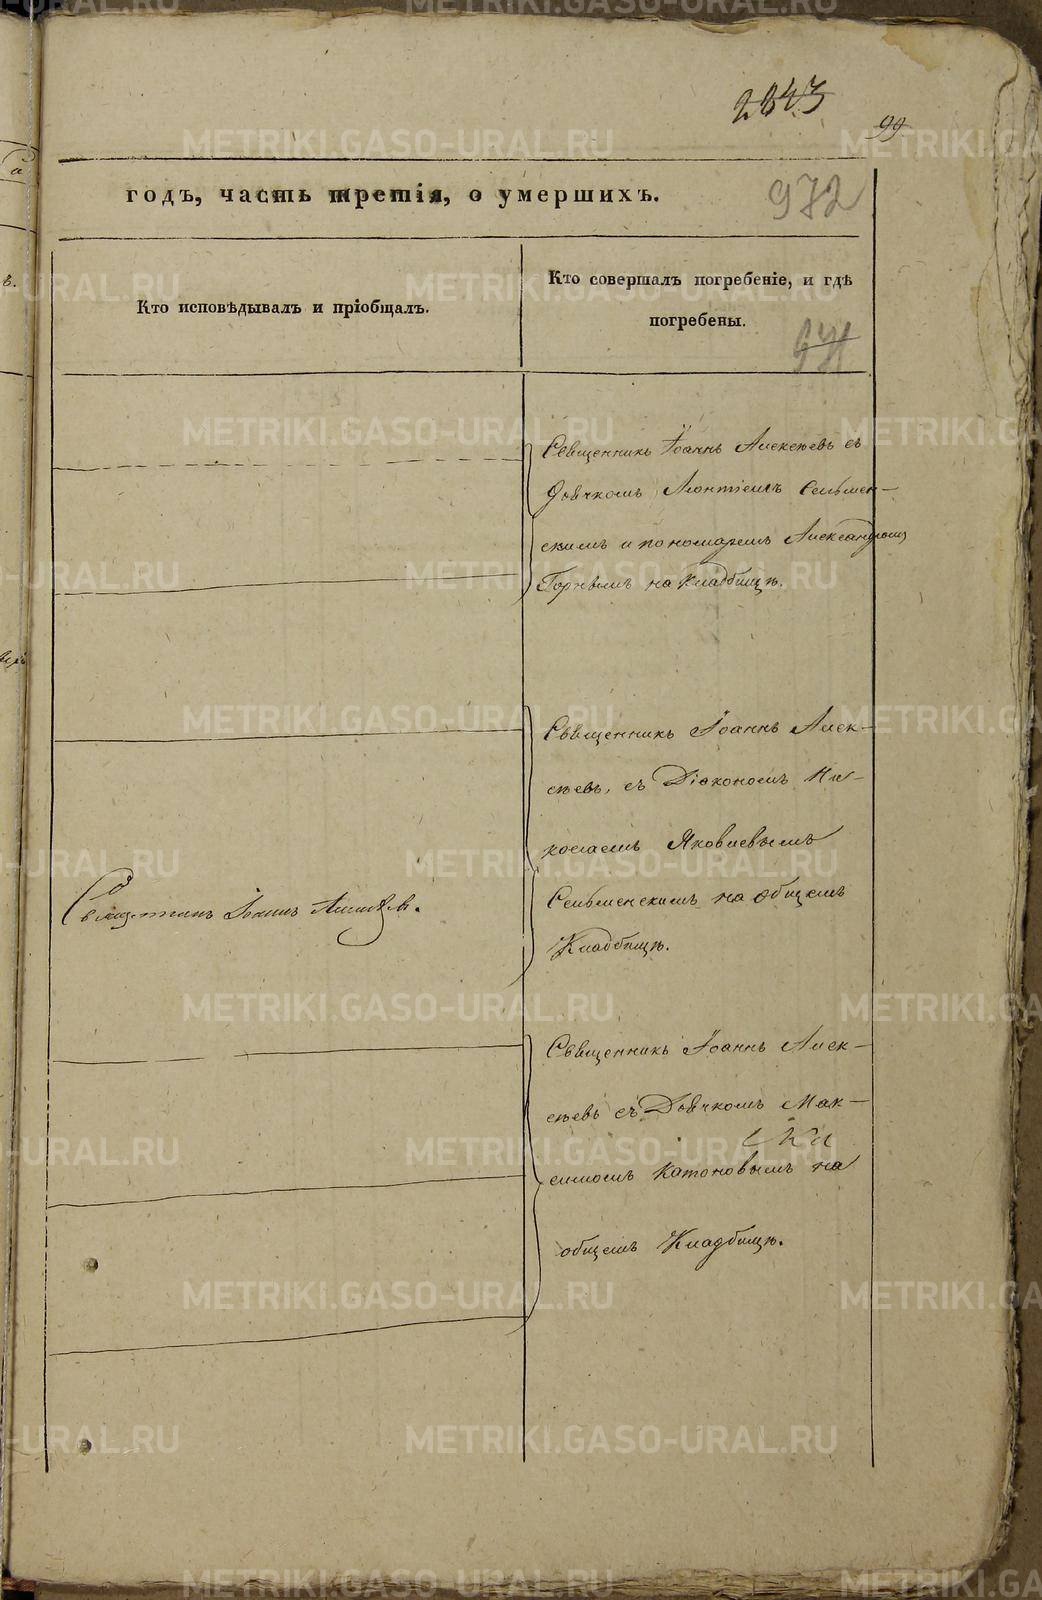 2843
99
годъ, часть третія, о умершихъ.
972
Кто исповѣдывалъ и пріобщалъ.
Кто совершалъ погребеніе, и гдѣ
погребены.
Священникъ Іоаннъ Алексѣевъ съ
Дьячкомъ Леонтіемъ Сельмен-
скимъ и пономаремъ Александромъ
Горнымъ на кладбищѣ.
Священникъ Іоаннъ Алек-
сѣевъ, съ Діакономъ Ни-
колаемъ Яковлевымъ
Сельменскимъ на общемъ
Кладбищѣ.
Священникъ Іоаннъ Алексѣевъ.
Священникъ Іоаннъ Алек-
сѣевъ съ Дьячкомъ Мак-
симомъ Катоновымъ на
общемъ Кладбищѣ.
METRIKI.GASO-URAL.RU